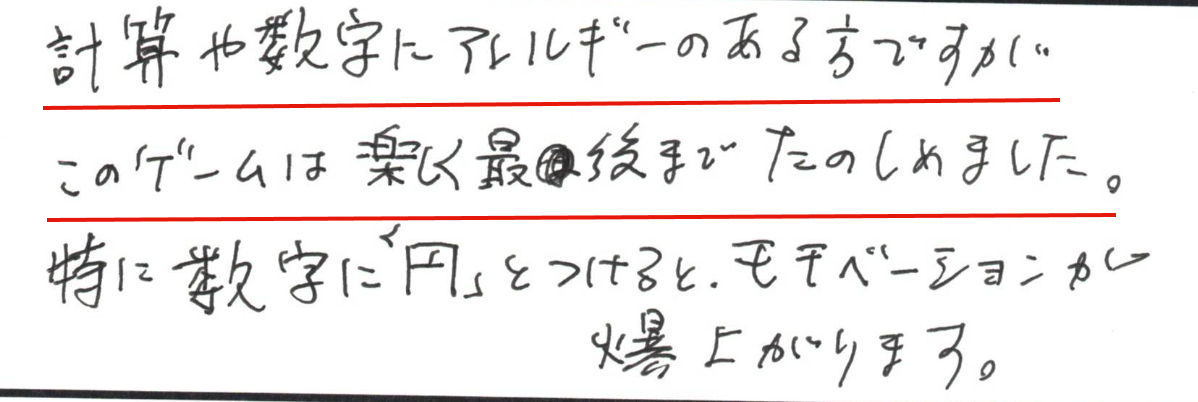 計算や数字にアレルギーのある方ですが
このゲームは楽しく最後までたのしめました。
特に数字に「円」とつけると、モチベーションが
爆上がります。